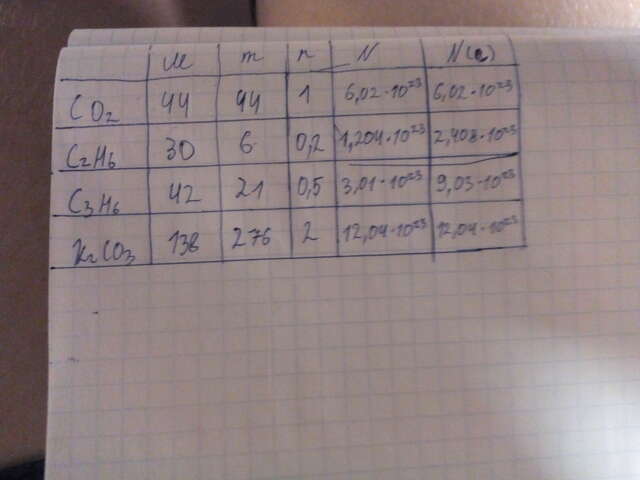 M m n N N(c)
CO2 44 44 1 6,02·10²³ 6,02·10²³
C2H6 30 6 0,2 1,204·10²³ 2,408·10²³
C3H6 42 21 0,5 3,01·10²³ 9,03·10²³
K2CO3 138 276 2 12,04·10²³ 12,04·10²³